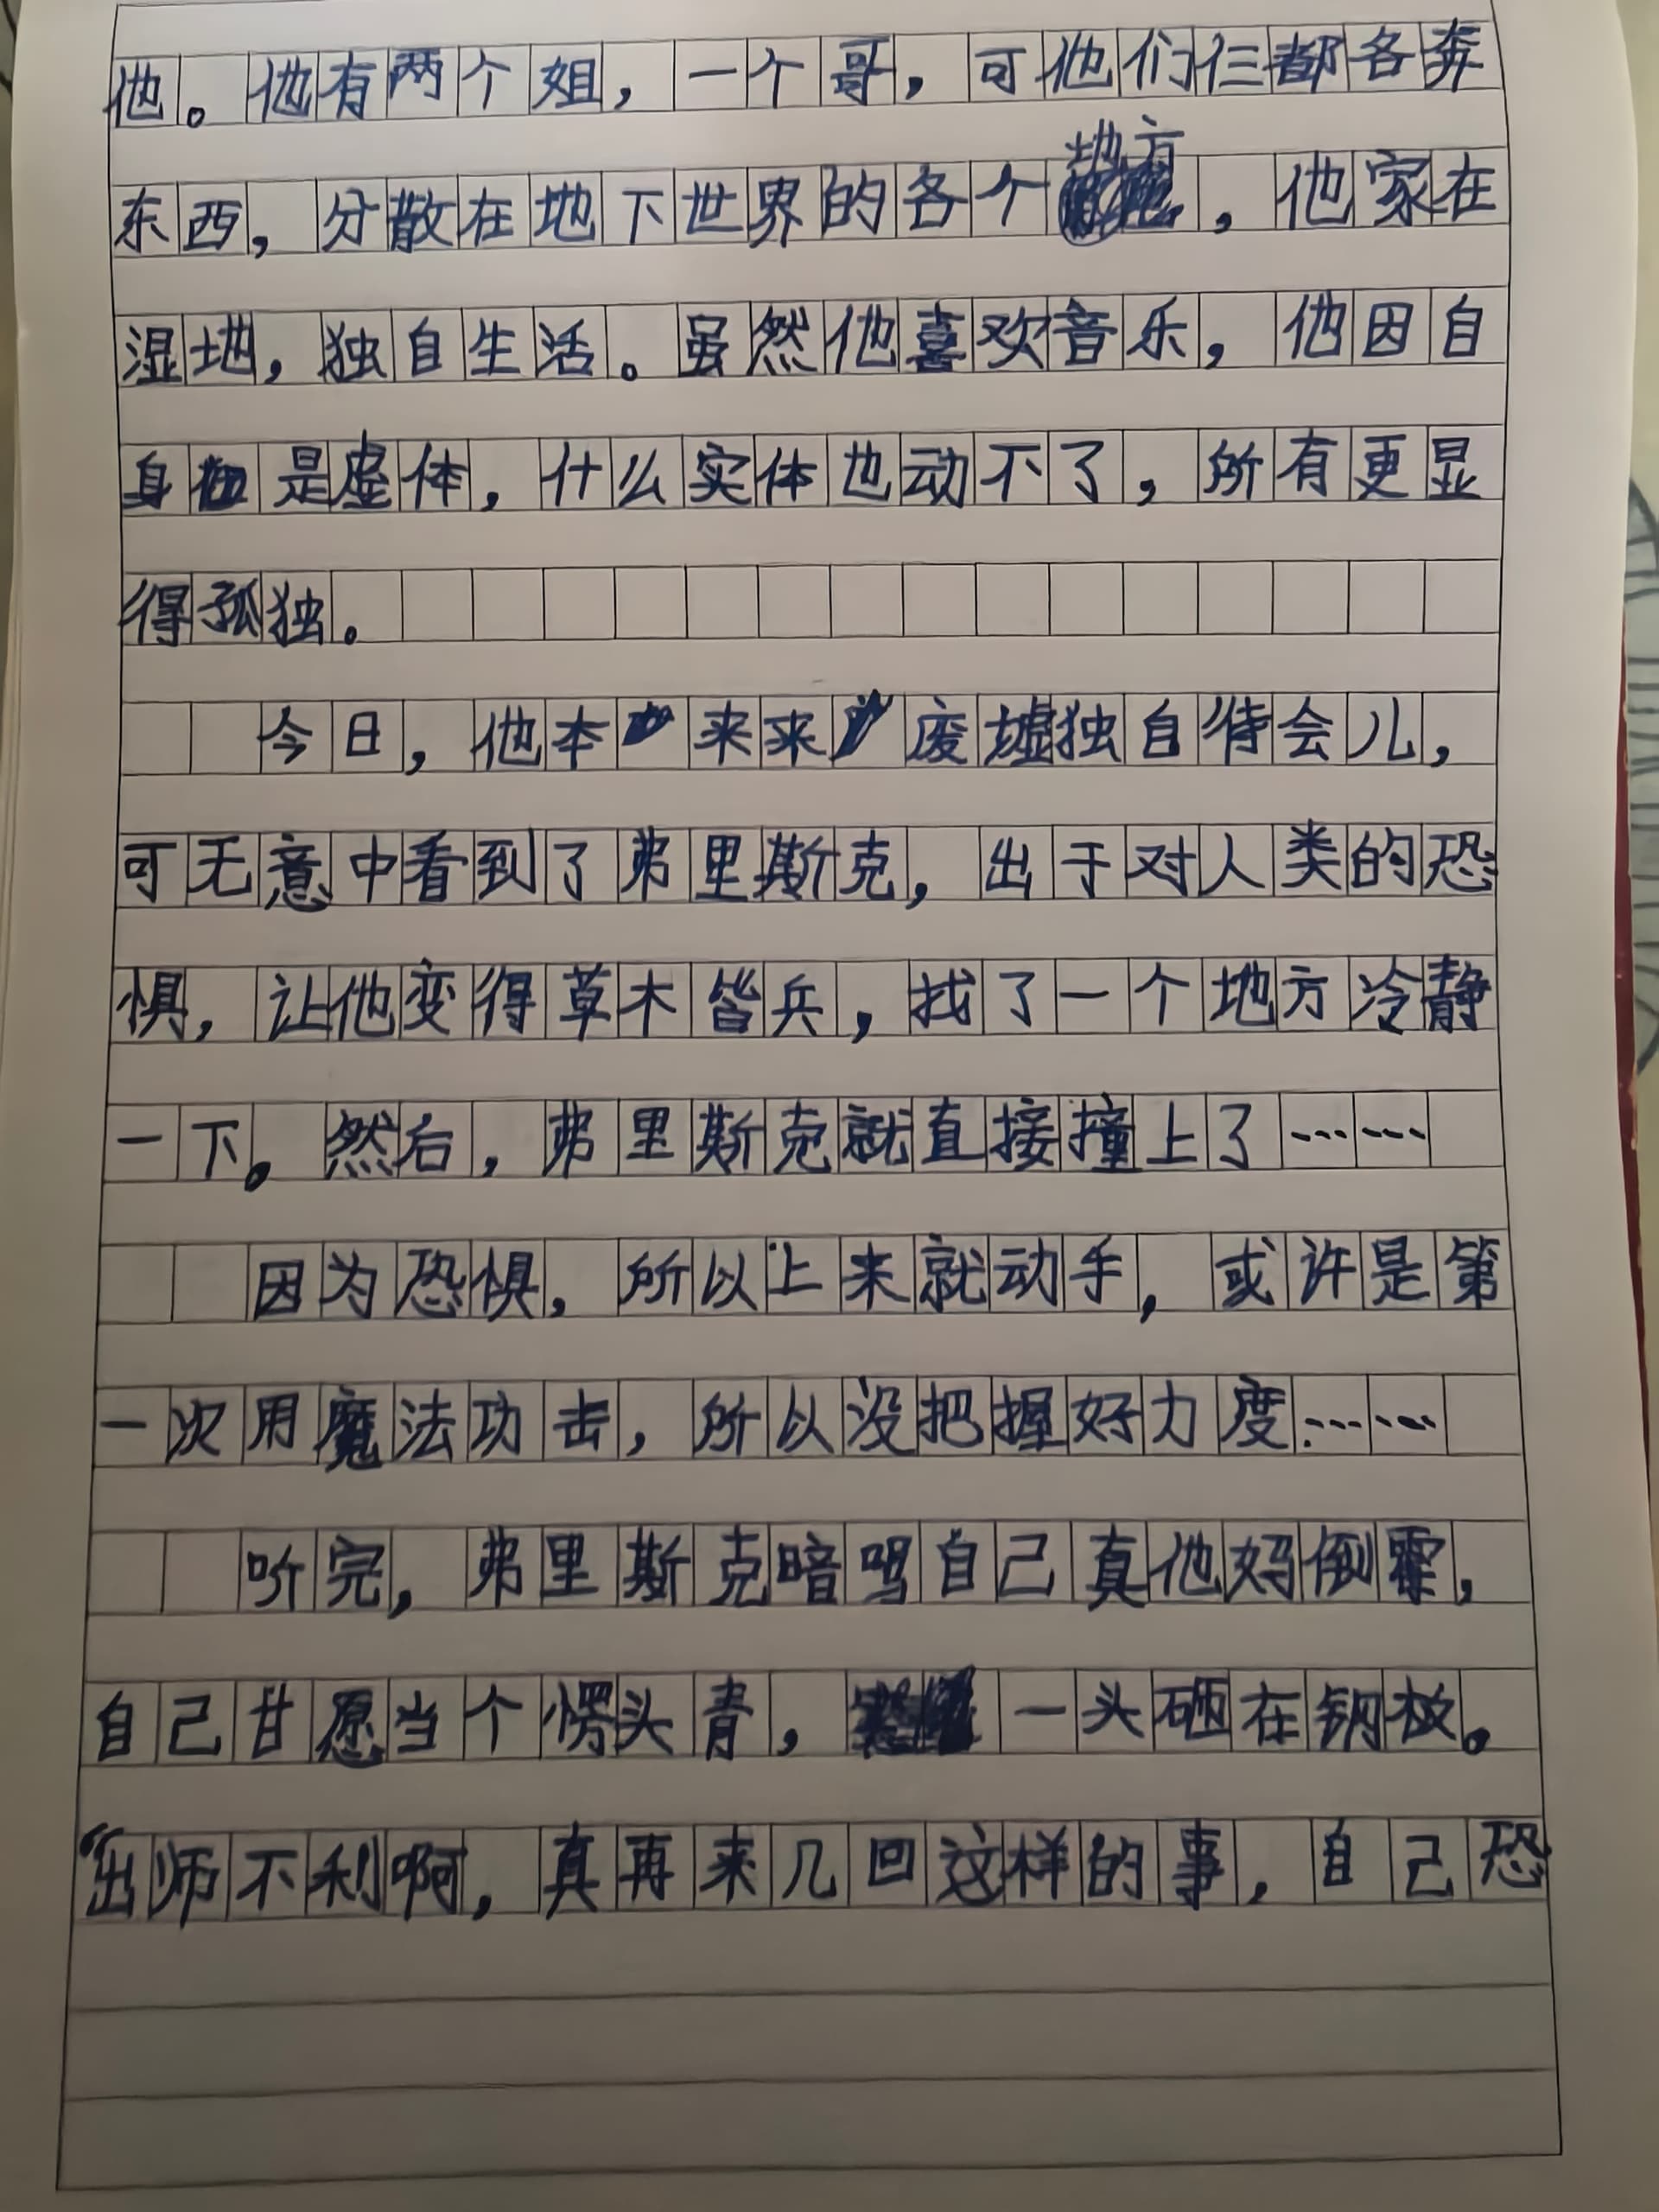 他。他有两个姐，一个哥，可他们仨都各奔
东西，分散在地下世界的各个地方，他家在
湿地，独自生活。虽然他喜欢音乐，他因自
身是虚体，什么实体也动不了，所有更显
得孤独。
今日，他本来来废墟独自待会儿，
可无意中看到了弗里斯克，出于对人类的恐
惧，让他变得草木皆兵，找了一个地方冷静
一下。然后，弗里斯克就直接撞上了……
因为恐惧，所以上来就动手，或许是第
一次用魔法功击，所以没把握好力度……
听完，弗里斯克暗骂自己真他妈倒霉，
自己甘愿当个愣头青，一头砸在钢板。
“出师不利啊，真再来几回这样的事，自己恐